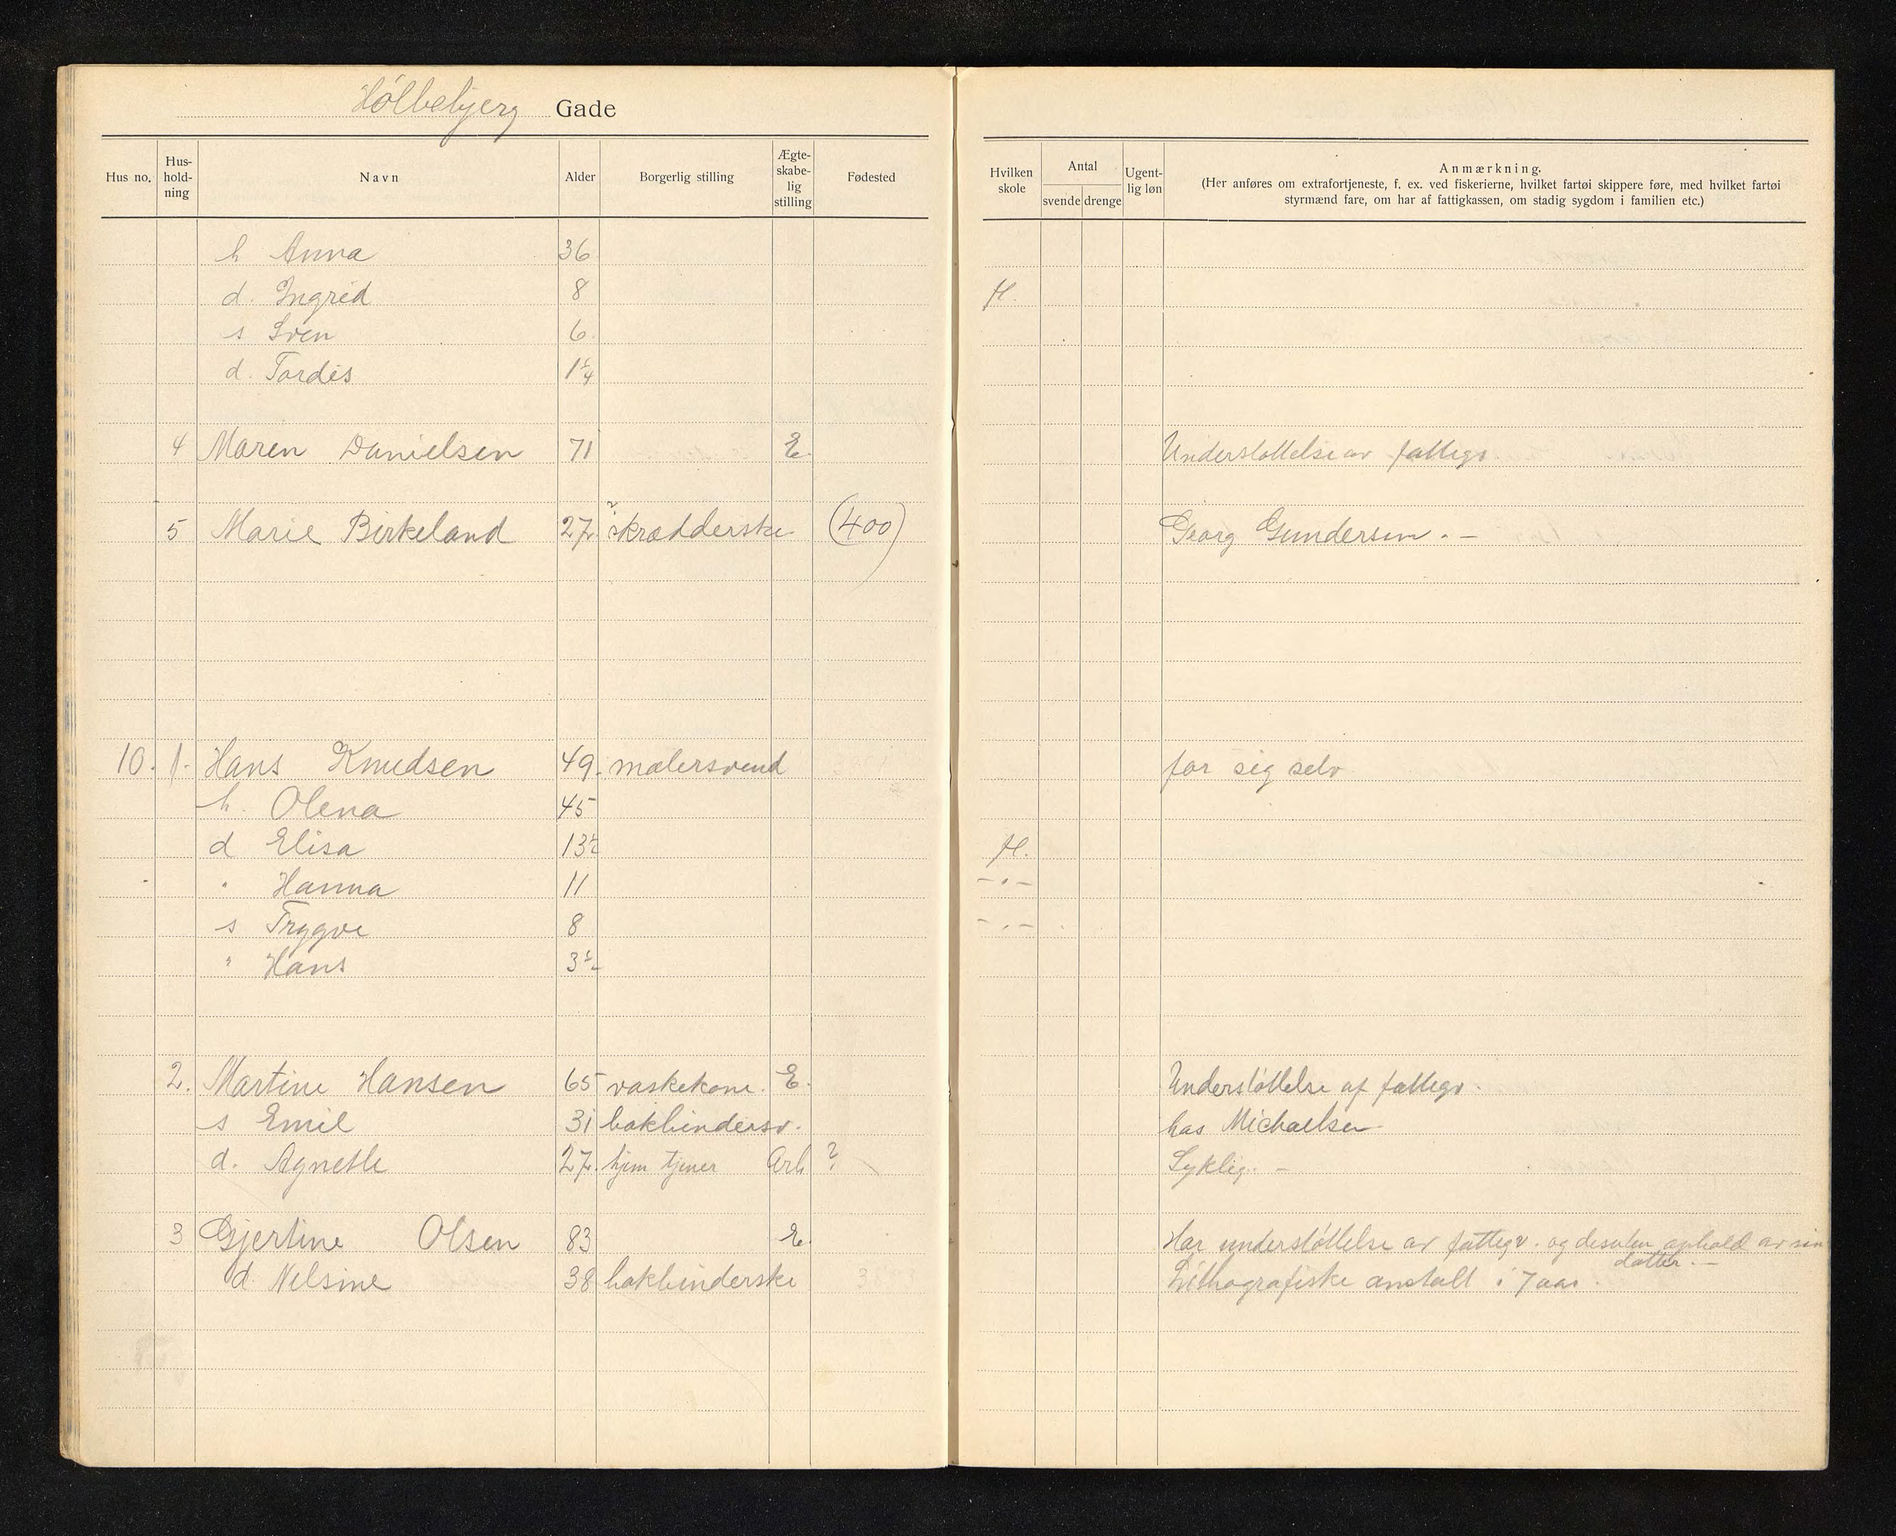 Hølbebjerg Gade
Hus no. Hus-hold-ning Navn Alder Borgerlig stilling Ægte-skabe-lig stilling Fødested Hvilken skole Antal svende drenge Ugent-lig løn Anmærkning.
(Her anføres om extrafortjeneste, f. ex. ved fiskerierne, hvilket fartøi skippere føre, med hvilket fartøi
styrmænd fare, om har af fattigkassen, om stadig sygdom i familien etc.)
h Anna 36
d. Ingrid 8 H.
s Sven 6.
d. Tordis 1¼
4 Maren Danielsen 71 E. Understøttelse av fattigv.
5 Marie Birkeland 27. ? skrædderske (400) Georg Gundersen. –
10. 1. Hans Knudsen 49. malersvend for sig selv
h. Olena 45
d Elisa 13½ H.
" Hanna 11 – " –
s Trygve 8 – " –
" Hans 3½
2. Martine Hansen 65 vaskekone. E. Understøttelse af fattigv.
s Emil 31 bokbindersv. hos Michaelsen.
d. Agnethe 27. hjem tjener Arb ? Syklig. –
3 Gjertine Olsen 83 E. Har understøttelse av fattigv. og desuten ophold av sin
datter. –
d. Nelsine 38 bokbinderske 3 Lithografiske anstalt i 7 aar.